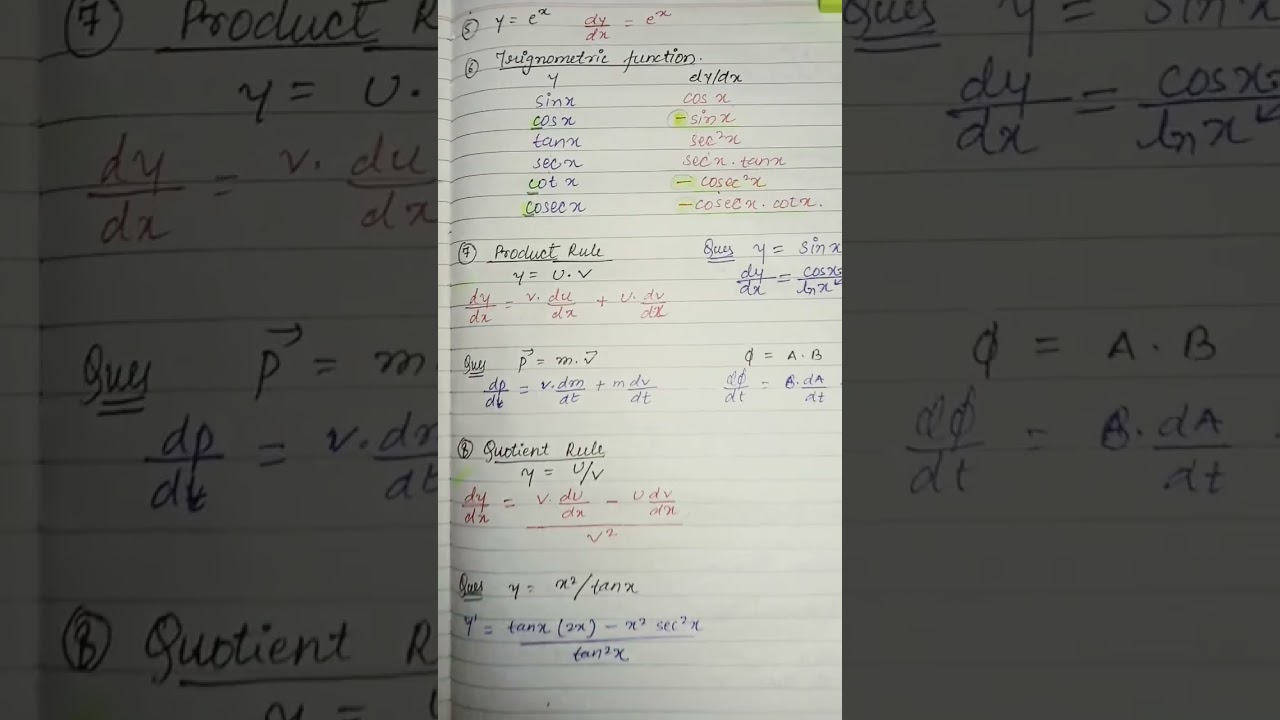 ⑤ y = eˣ dy/dx = eˣ
⑥ Trignometric function.
y dy/dx
sinx cos x
cosx -sinx
tanx sec²x
secx secx . tanx
cot x - cosec²x
cosecx -cosecx . cotx.
⑦ Product Rule Ques y = sinx
y = U . V dy/dx = cosx
dy/dx = v. du/dx + U. dv/dx lnx
Ques p⃗ = m. v⃗ ϕ = A . B
dp/dt = v.dm/dt + m dv/dt dϕ/dt = B. dA/dt
⑧ Quotient Rule
y = U/V
dy/dx = (v. du/dx - U dv/dx) / v²
Ques y = x²/tanx
y' = (tanx (2x) - x² sec²x) / tan²x